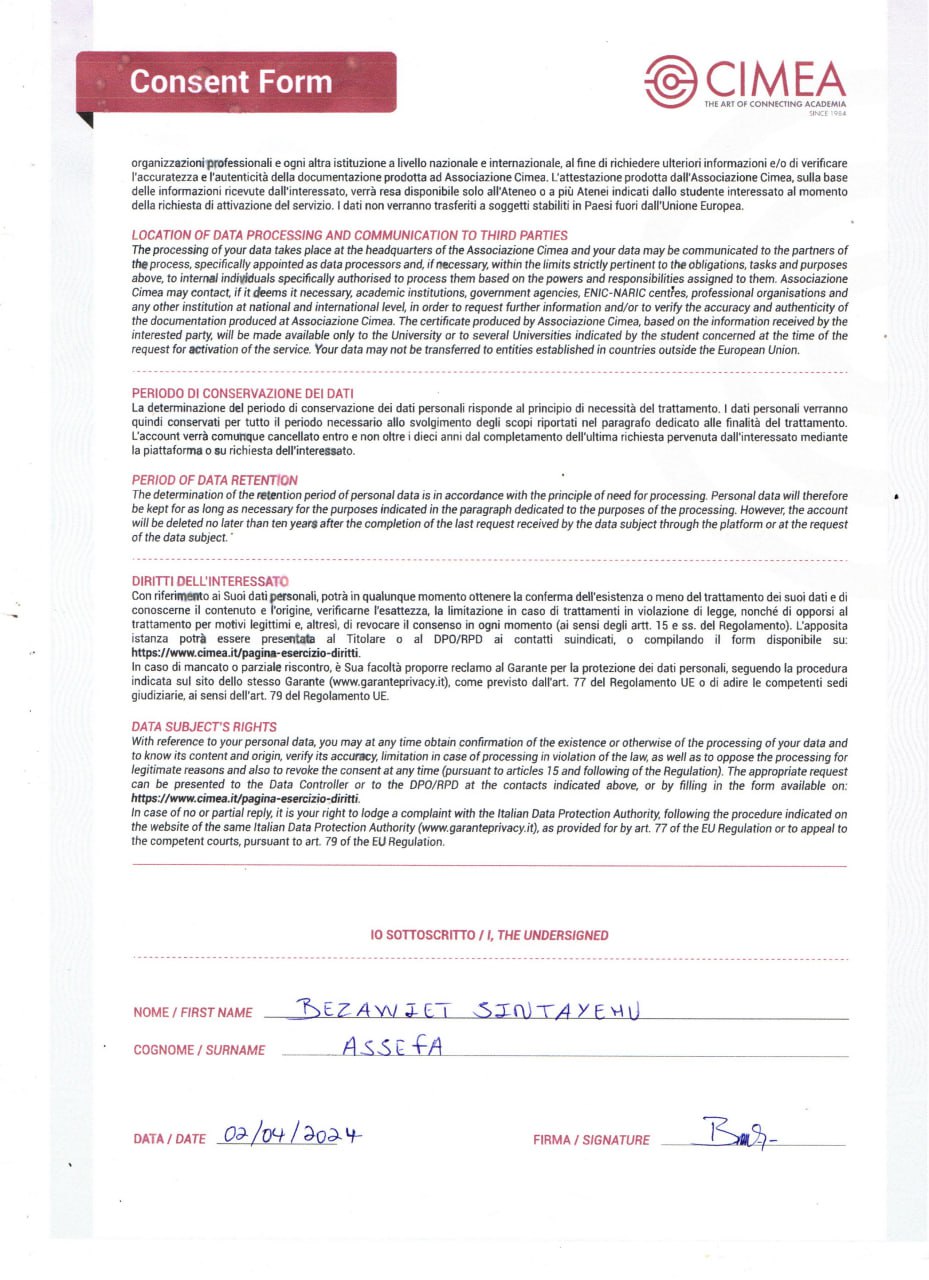 Consent Form
CIMEA
THE ART OF CONNECTING ACADEMIA
SINCE 1984
organizzazioni professionali e ogni altra istituzione a livello nazionale e internazionale, al fine di richiedere ulteriori informazioni e/o di verificare
l'accuratezza e l'autenticità della documentazione prodotta ad Associazione Cimea. L'attestazione prodotta dall'Associazione Cimea, sulla base
delle informazioni ricevute dall'interessato, verrà resa disponibile solo all'Ateneo o a più Atenei indicati dallo studente interessato al momento
della richiesta di attivazione del servizio. I dati non verranno trasferiti a soggetti stabiliti in Paesi fuori dall'Unione Europea.
LOCATION OF DATA PROCESSING AND COMMUNICATION TO THIRD PARTIES
The processing of your data takes place at the headquarters of the Associazione Cimea and your data may be communicated to the partners of
the process, specifically appointed as data processors and, if necessary, within the limits strictly pertinent to the obligations, tasks and purposes
above, to internal individuals specifically authorised to process them based on the powers and responsibilities assigned to them. Associazione
Cimea may contact, if it deems it necessary, academic institutions, government agencies, ENIC-NARIC centres, professional organisations and
any other institution at national and international level, in order to request further information and/or to verify the accuracy and authenticity of
the documentation produced at Associazione Cimea. The certificate produced by Associazione Cimea, based on the information received by the
interested party, will be made available only to the University or to several Universities indicated by the student concerned at the time of the
request for activation of the service. Your data may not be transferred to entities established in countries outside the European Union.
PERIODO DI CONSERVAZIONE DEI DATI
La determinazione del periodo di conservazione dei dati personali risponde al principio di necessità del trattamento. I dati personali verranno
quindi conservati per tutto il periodo necessario allo svolgimento degli scopi riportati nel paragrafo dedicato alle finalità del trattamento.
L'account verrà comunque cancellato entro e non oltre i dieci anni dal completamento dell'ultima richiesta pervenuta dall'interessato mediante
la piattaforma o su richiesta dell'interessato.
PERIOD OF DATA RETENTION
The determination of the retention period of personal data is in accordance with the principle of need for processing. Personal data will therefore
be kept for as long as necessary for the purposes indicated in the paragraph dedicated to the purposes of the processing. However, the account
will be deleted no later than ten years after the completion of the last request received by the data subject through the platform or at the request
of the data subject.
DIRITTI DELL'INTERESSATO
Con riferimento ai Suoi dati personali, potrà in qualunque momento ottenere la conferma dell'esistenza o meno del trattamento dei suoi dati e di
conoscerne il contenuto e l'origine, verificarne l'esattezza, la limitazione in caso di trattamenti in violazione di legge, nonché di opporsi al
trattamento per motivi legittimi e, altresì, di revocare il consenso in ogni momento (ai sensi degli artt. 15 e ss. del Regolamento). L'apposita
istanza potrà essere presentata al Titolare o al DPO/RPD ai contatti suindicati, o compilando il form disponibile su:
https://www.cimea.it/pagina-esercizio-diritti.
In caso di mancato o parziale riscontro, è Sua facoltà proporre reclamo al Garante per la protezione dei dati personali, seguendo la procedura
indicata sul sito dello stesso Garante (www.garanteprivacy.it), come previsto dall'art. 77 del Regolamento UE o di adire le competenti sedi
giudiziarie, ai sensi dell'art. 79 del Regolamento UE.
DATA SUBJECT'S RIGHTS
With reference to your personal data, you may at any time obtain confirmation of the existence or otherwise of the processing of your data and
to know its content and origin, verify its accuracy, limitation in case of processing in violation of the law, as well as to oppose the processing for
legitimate reasons and also to revoke the consent at any time (pursuant to articles 15 and following of the Regulation). The appropriate request
can be presented to the Data Controller or to the DPO/RPD at the contacts indicated above, or by filling in the form available on:
https://www.cimea.it/pagina-esercizio-diritti.
In case of no or partial reply, it is your right to lodge a complaint with the Italian Data Protection Authority, following the procedure indicated on
the website of the same Italian Data Protection Authority (www.garanteprivacy.it), as provided for by art. 77 of the EU Regulation or to appeal to
the competent courts, pursuant to art. 79 of the EU Regulation.
IO SOTTOSCRITTO / I, THE UNDERSIGNED
NOME / FIRST NAME BEZAWIET SINTAYEHU
COGNOME / SURNAME ASSEFA
DATA / DATE 02/04/2024 FIRMA / SIGNATURE